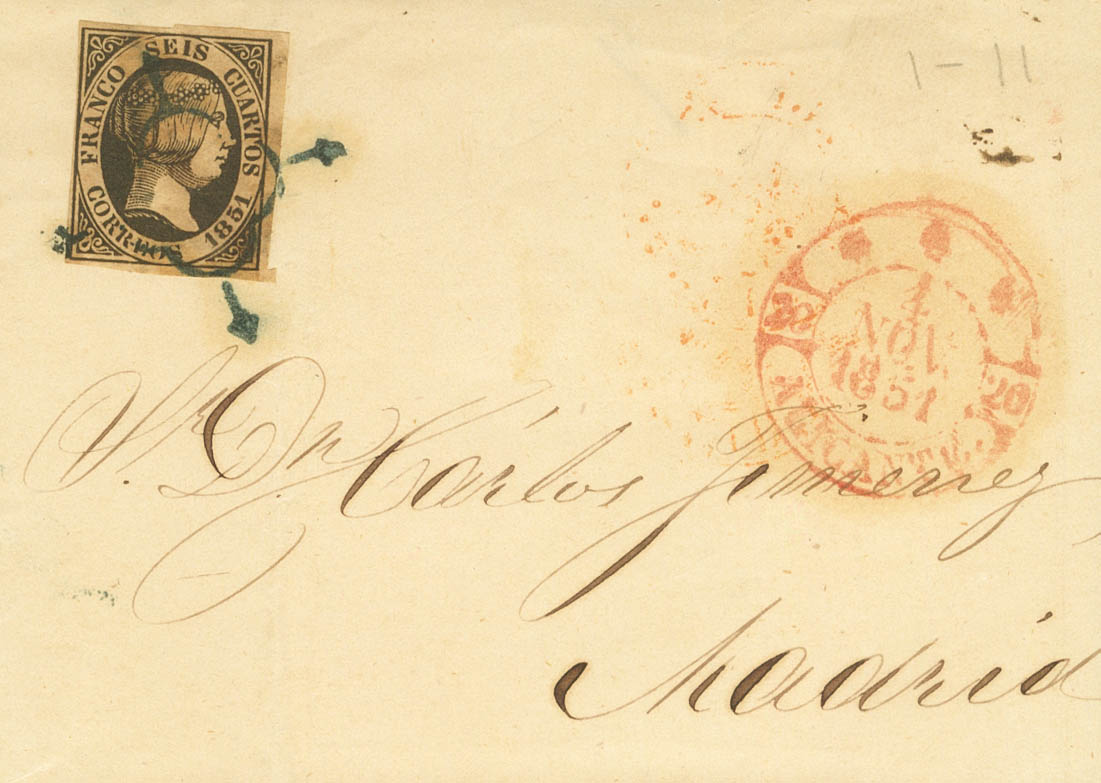 FRANCO SEIS CUARTOS
CORREOS 1851
1-11
1
NOV
1851
20
Sr. Dn Cárlos Jimenez
Madrid